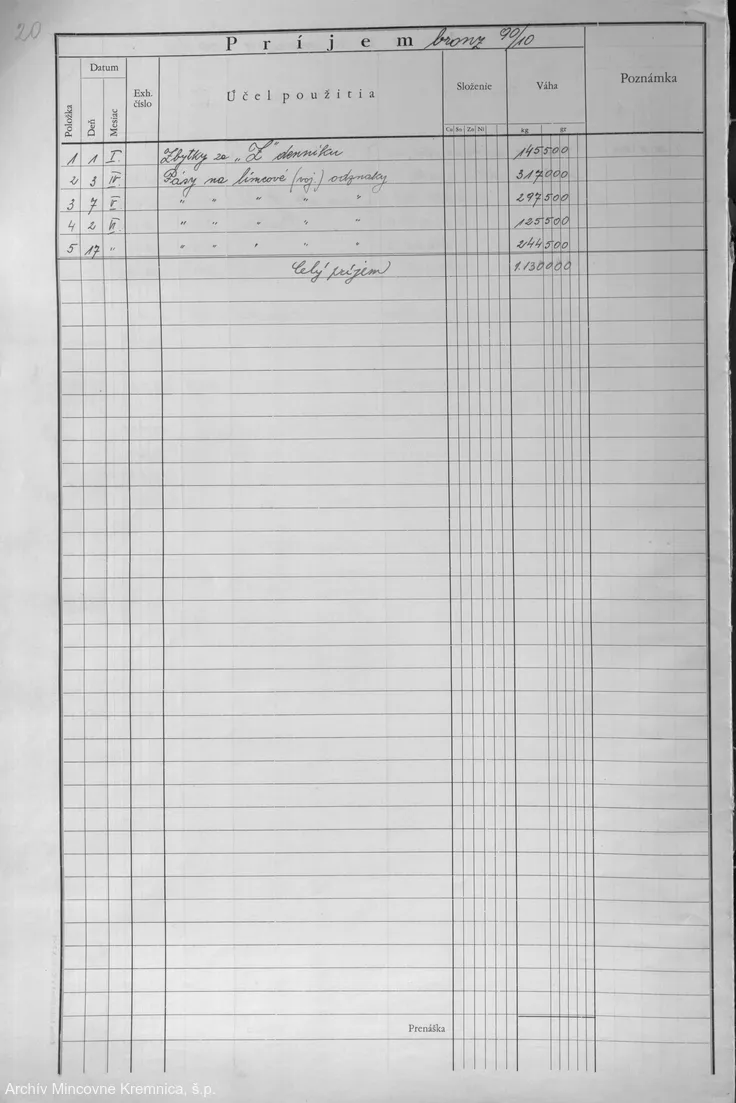 20
Príjem bronz 90/10
Položka
Datum
Deň
Mesiac
Exh. číslo
Účel použitia
Složenie
Cu Sn Zn Ni
Váha
kg gr
Poznámka
1 1 I. Zbytky ze "Z" denníku 145500
2 3 IV. Pásy na límcové (voj.) odznaky 317000
3 7 V. " " " " " 297500
4 2 VI. " " " " " 125500
5 17 " " " " " " 244500
Celý príjem 1.130000
Prenáška
Archív Mincovne Kremnica, š.p.